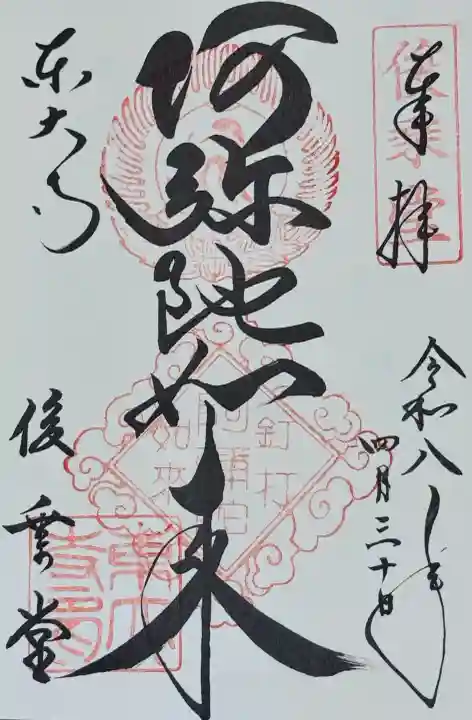 俊乗堂
奉拝
令和八年
四月三十日
阿弥陀如来
釘打
如來
東大寺
俊乗堂